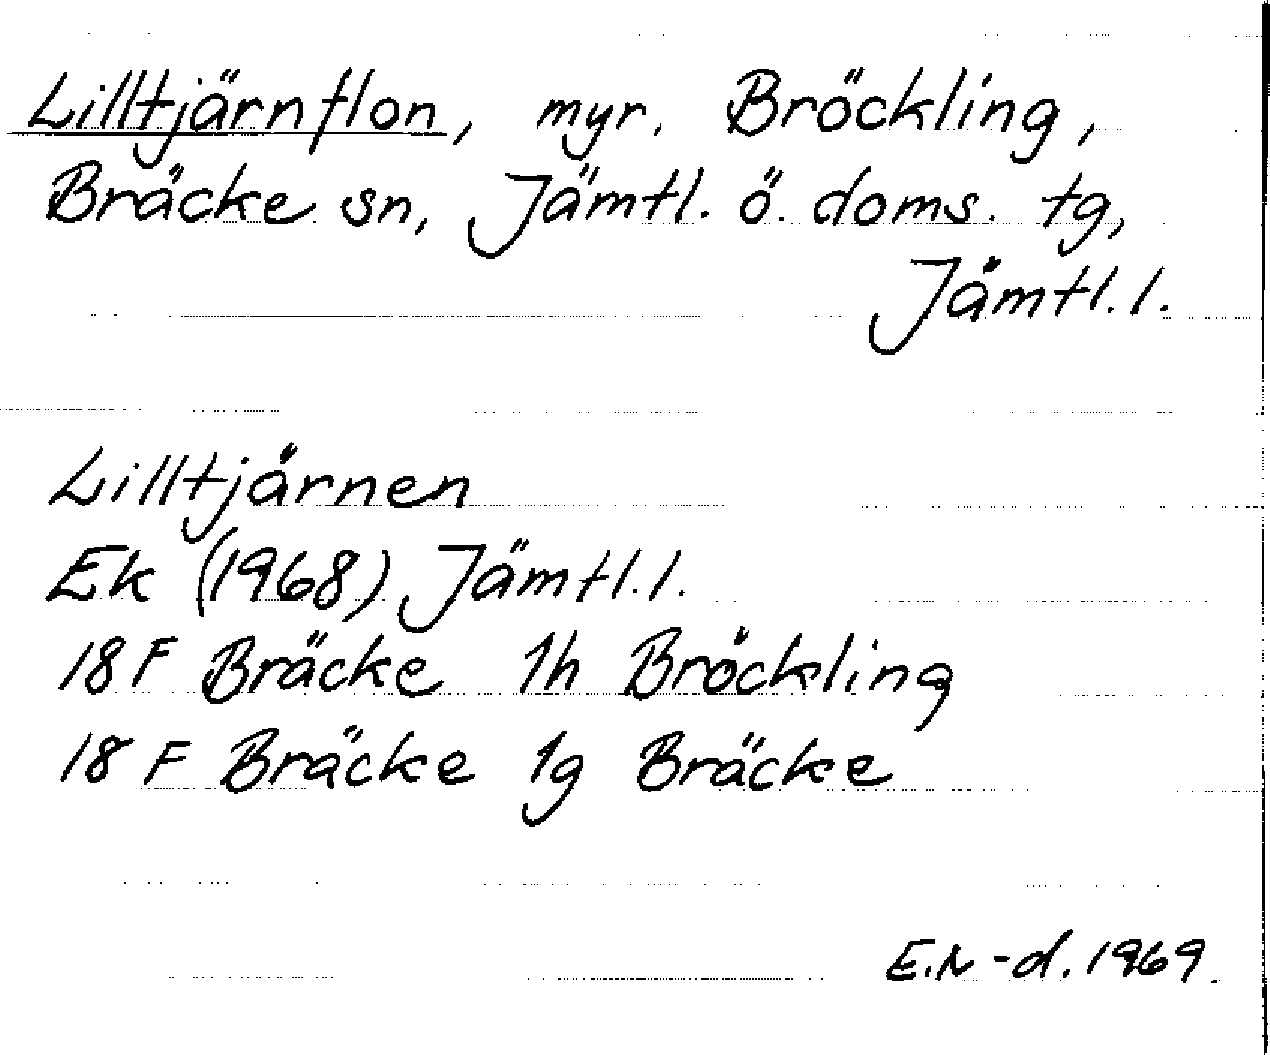 Lilltjärnflon, myr, Bröckling,
Bräcke sn, Jämtl. ö. doms. tg,
Jämtl. l.
Lilltjärnen
Ek (1968) Jämtl. l.
18 F Bräcke 1h Bröckling
18 F Bräcke 1g Bräcke
E.N-d. 1969.